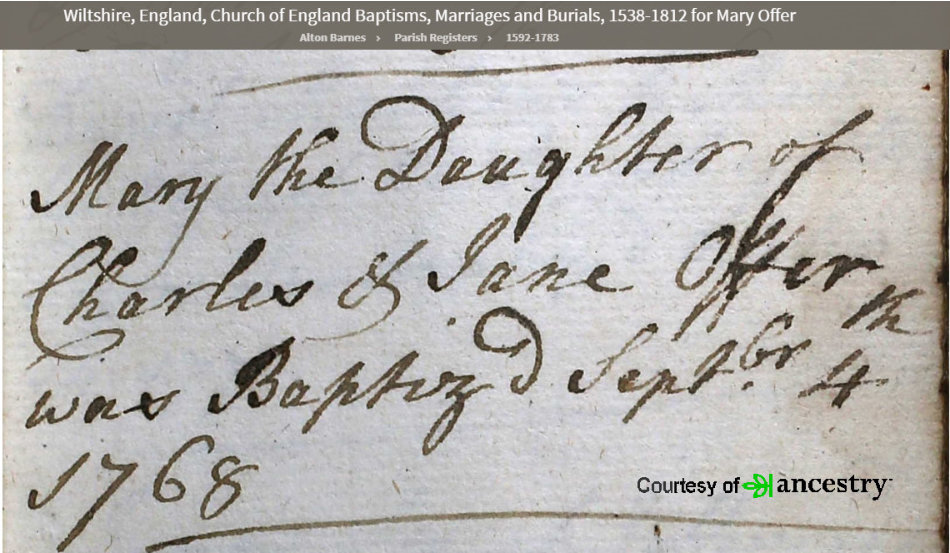 Wiltshire, England, Church of England Baptisms, Marriages and Burials, 1538-1812 for Mary Offer
Alton Barnes › Parish Registers › 1592-1783
Mary the Daughter of
Charles & Jane Offer
was Baptiz'd Septbr 4th
1768
Courtesy of ancestry